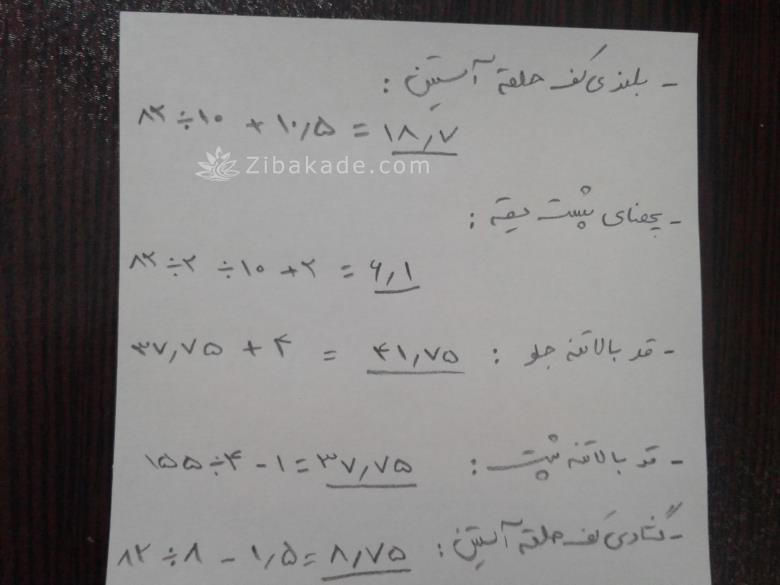 - بلندی کف حلقه آستین :
۸۲ ÷ ۱۰ + ۱۰٫۵ = ۱۸٫۷
Zibakade.com
- پهنای پشت یقه :
۸۲ ÷ ۲ ÷ ۱۰ + ۲ = ۶٫۱
- قد بالاتنه جلو : ۳۷٫۷۵ + ۴ = ۴۱٫۷۵
- قد بالاتنه پشت : ۱۵۵ ÷ ۴ - ۱ = ۳۷٫۷۵
- گشادی کف حلقه آستین : ۸۲ ÷ ۸ - ۱٫۵ = ۸٫۷۵